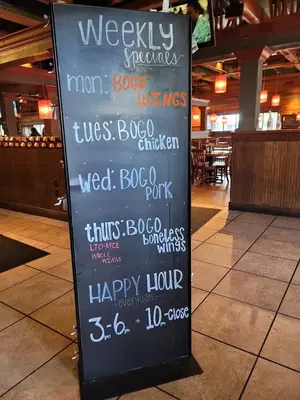 WEEKLY
specials
mon: BOGO
WINGS
tues: BOGO
chicken
wed: BOGO
PORK
thurs: BOGO
boneless
wings
LTO-AYCE
WHOLE
WINGS
HAPPY HOUR
everyday
3-6 + 10-close